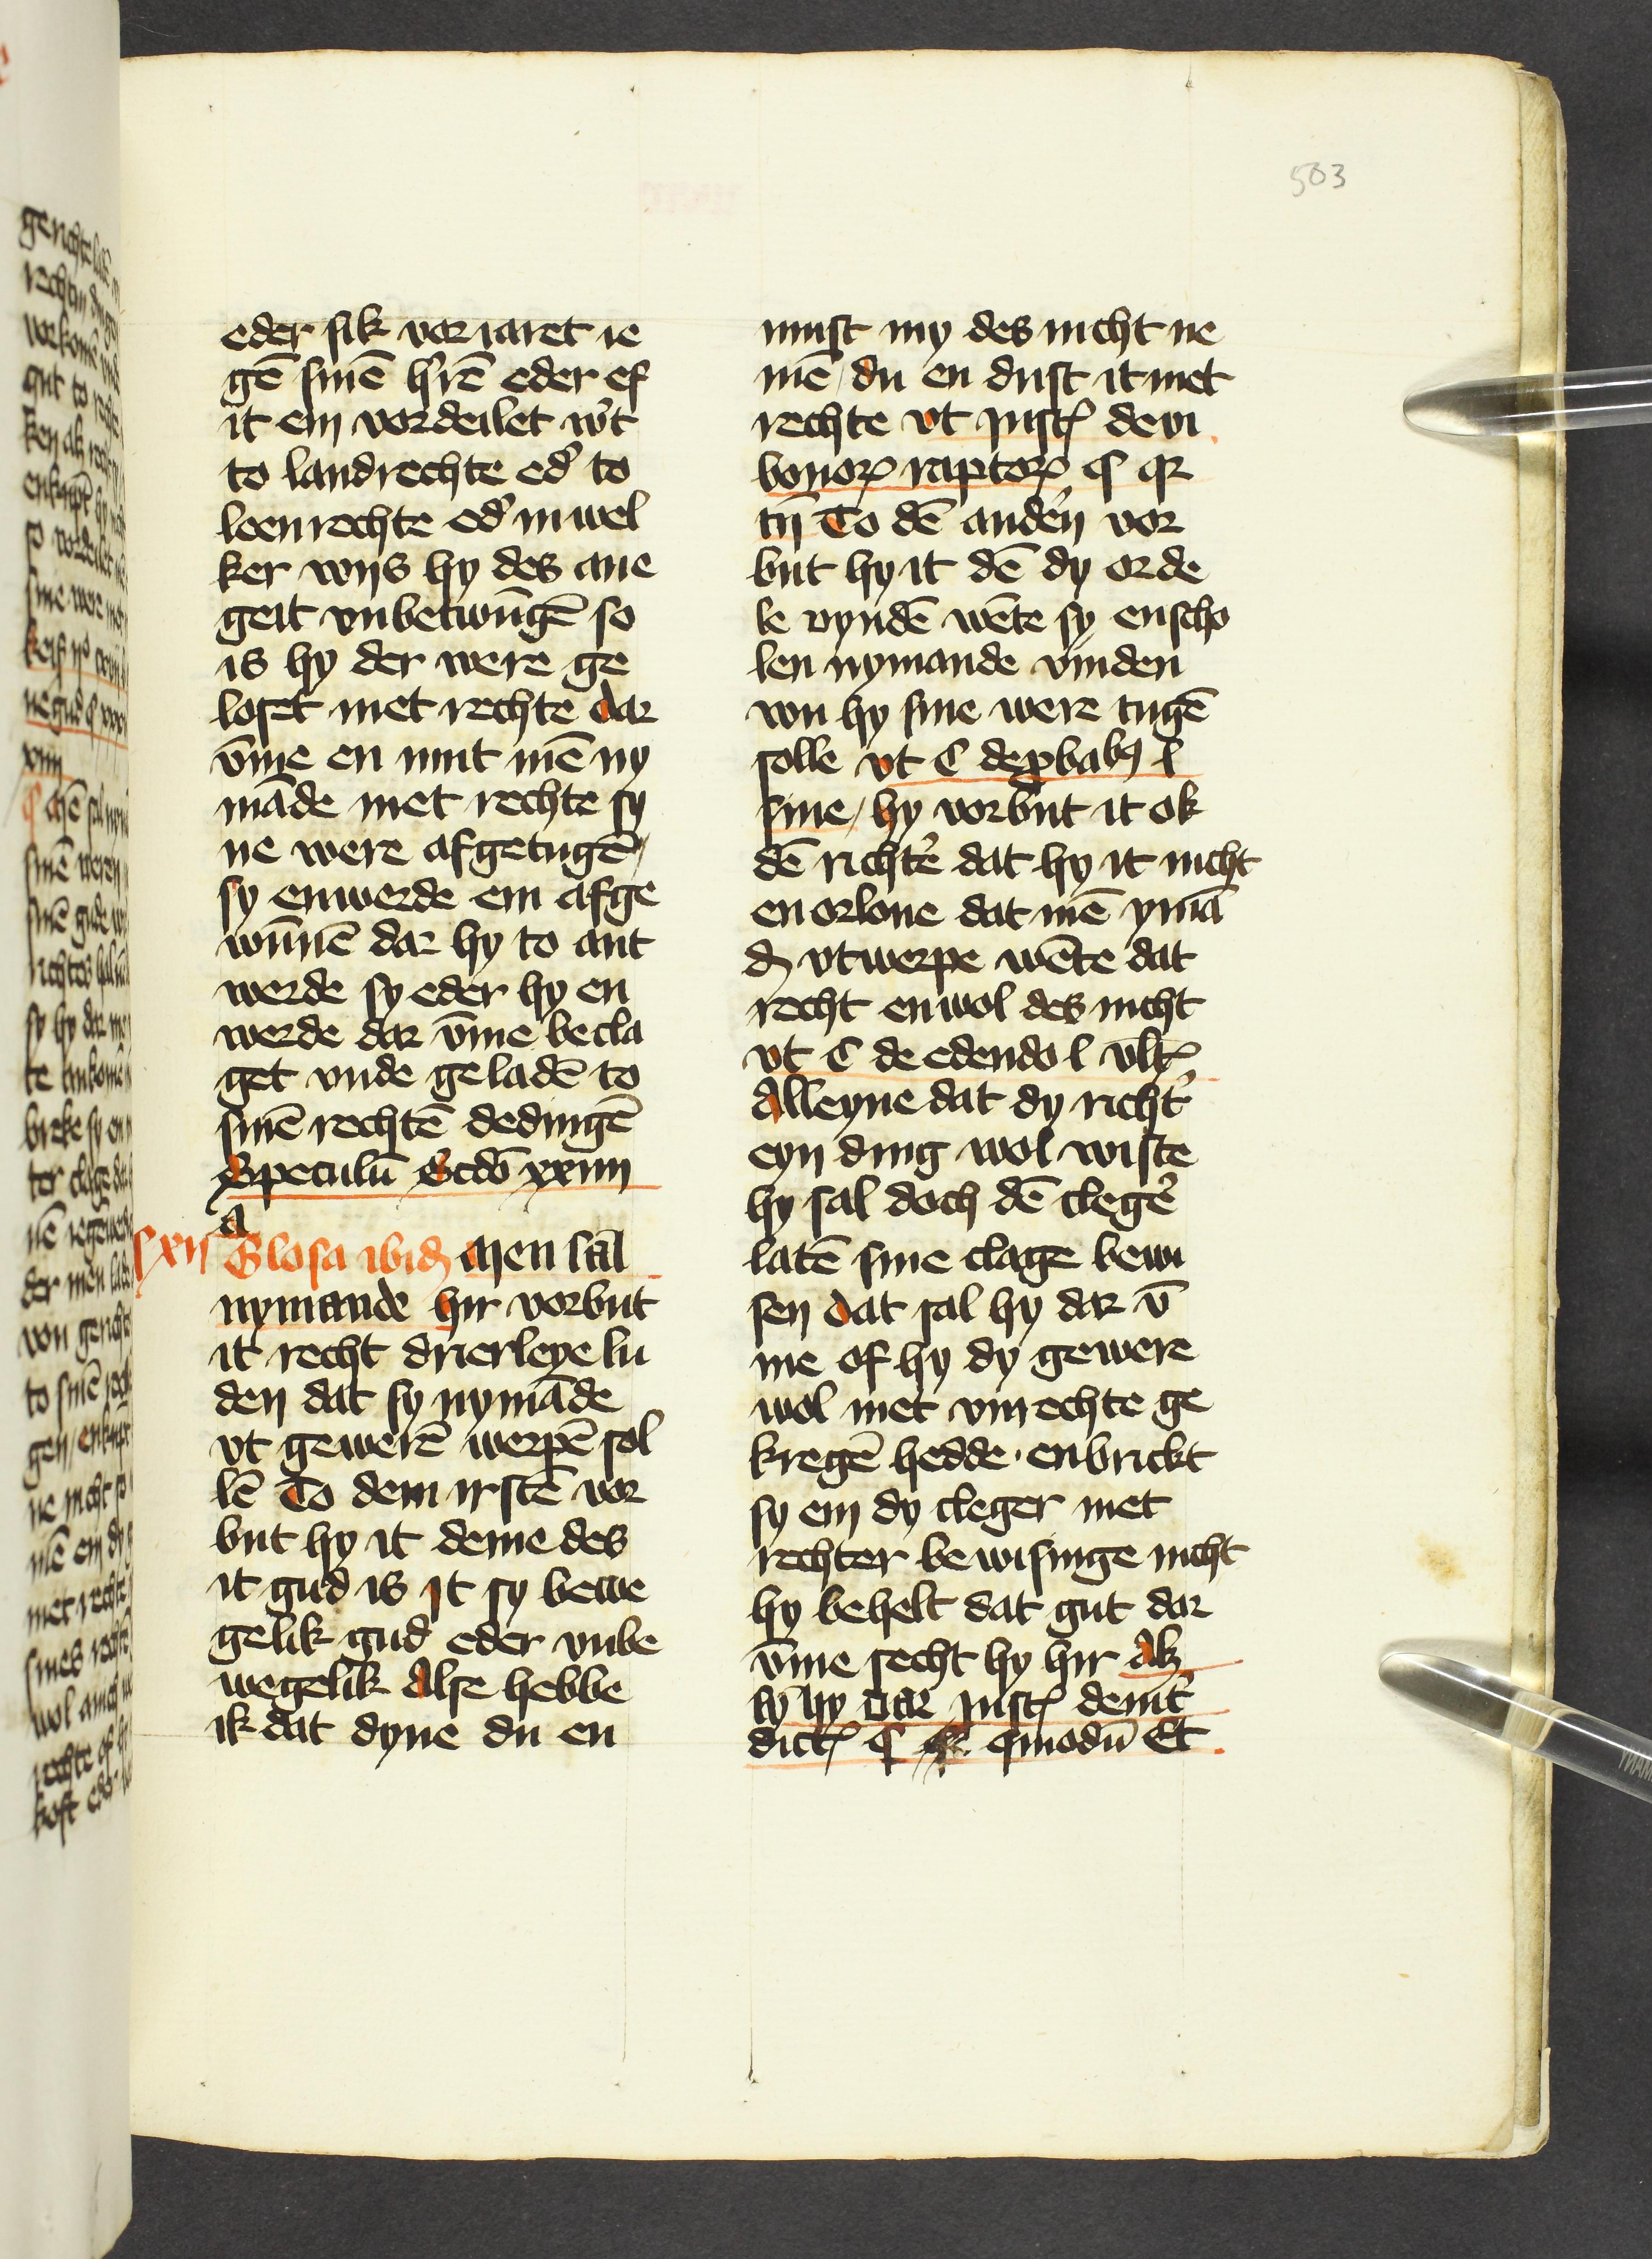 503
eder sik voriaret ie
gē sinē h'rē eder ef
it em vordeilet w't
to landrechte ed' to
leenrechte ed' in wel
ker wijs hy des ane
geit vnbetwūgē so
is hy der were ge
loset met rechte dar
v̄me en mut mē ny
māde met rechte sy
ne were afgetugē /
sy enwerde em afge
wūnē dar hy to ant
werde sy eder hy en
werde dar v̄me becla
get vnde geladē to
sinē rechtē dedingē
Speculū Scdō xxiiii
a
Glosa ibid Men sal
nymande hir vorbut
it recht drierleye lu
den dat sy nymāde
vt gewerē werpē sol
lē To dem irstē vor
but hy it deme des
it gud is it sy bewe
gelik gud eder vnbe
wegelik Alse hebbe
ik dat dyne du en
must my des nicht ne
mē / du en dust it met
rechte vt Inst de vi
bonor raptor § qr
tn To dē andern vor
but hy it dē dy orde
le vyndē wēte sy enscho
len nymande vinden
wu hy sine were tugē
solle vt C de pbab l
sine / hy vorbut it ok
dē richt'e dat hy it nicht
en orlone dat mē ymā
d vtwerpe wēte dat
recht enwol des nicht
vt C de edendo l vlt
Alleyne dat dy richt'
eyn ding wol wiste
hy sal doch dē cleg'e
latē sine clage bewi
sen dat sal hy dar v̄
me of hy dy gewere
wol met vnrechte ge
kregē hedde · enbrickt
sy em dy cleger met
rechter bewisinge nicht
hy behelt dat gut dar
v̄me secht hy hir Al
sy hy dar Inst de int'
dict § qmodū Et